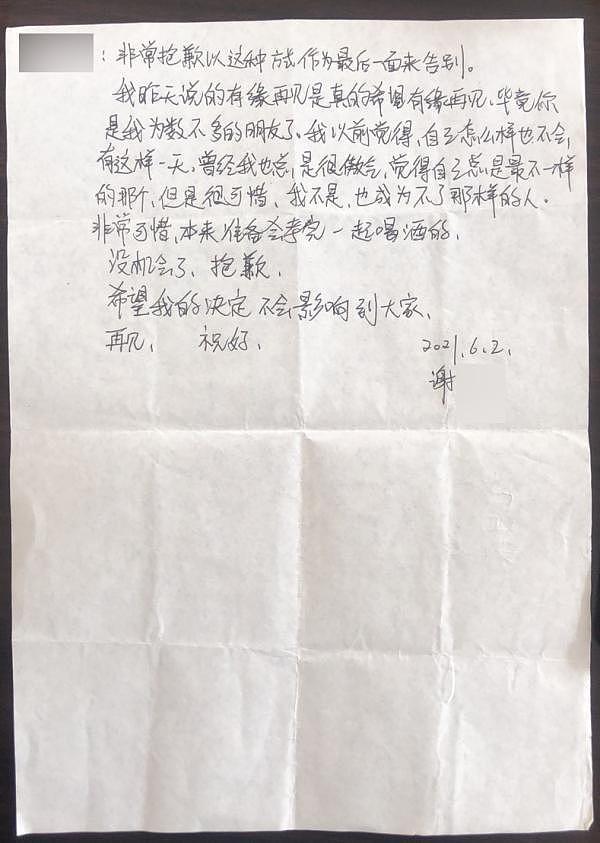 ：非常抱歉以这种方式作为最后一面来告别。
我昨天说的有缘再见是真的希望有缘再见，毕竟你
是我为数不多的朋友了。我以前觉得，自己怎么样也不会，
有这样一天，曾经我也总，是很傲气，觉得自己总是最不一样
的那个，但是很可惜，我不是，也成为不了那样的人。
非常可惜，本来准备会考完一起喝酒的，
没机会了，抱歉，
希望我的决定不会影响到大家，
再见， 祝好，
2021.6.2.
谢